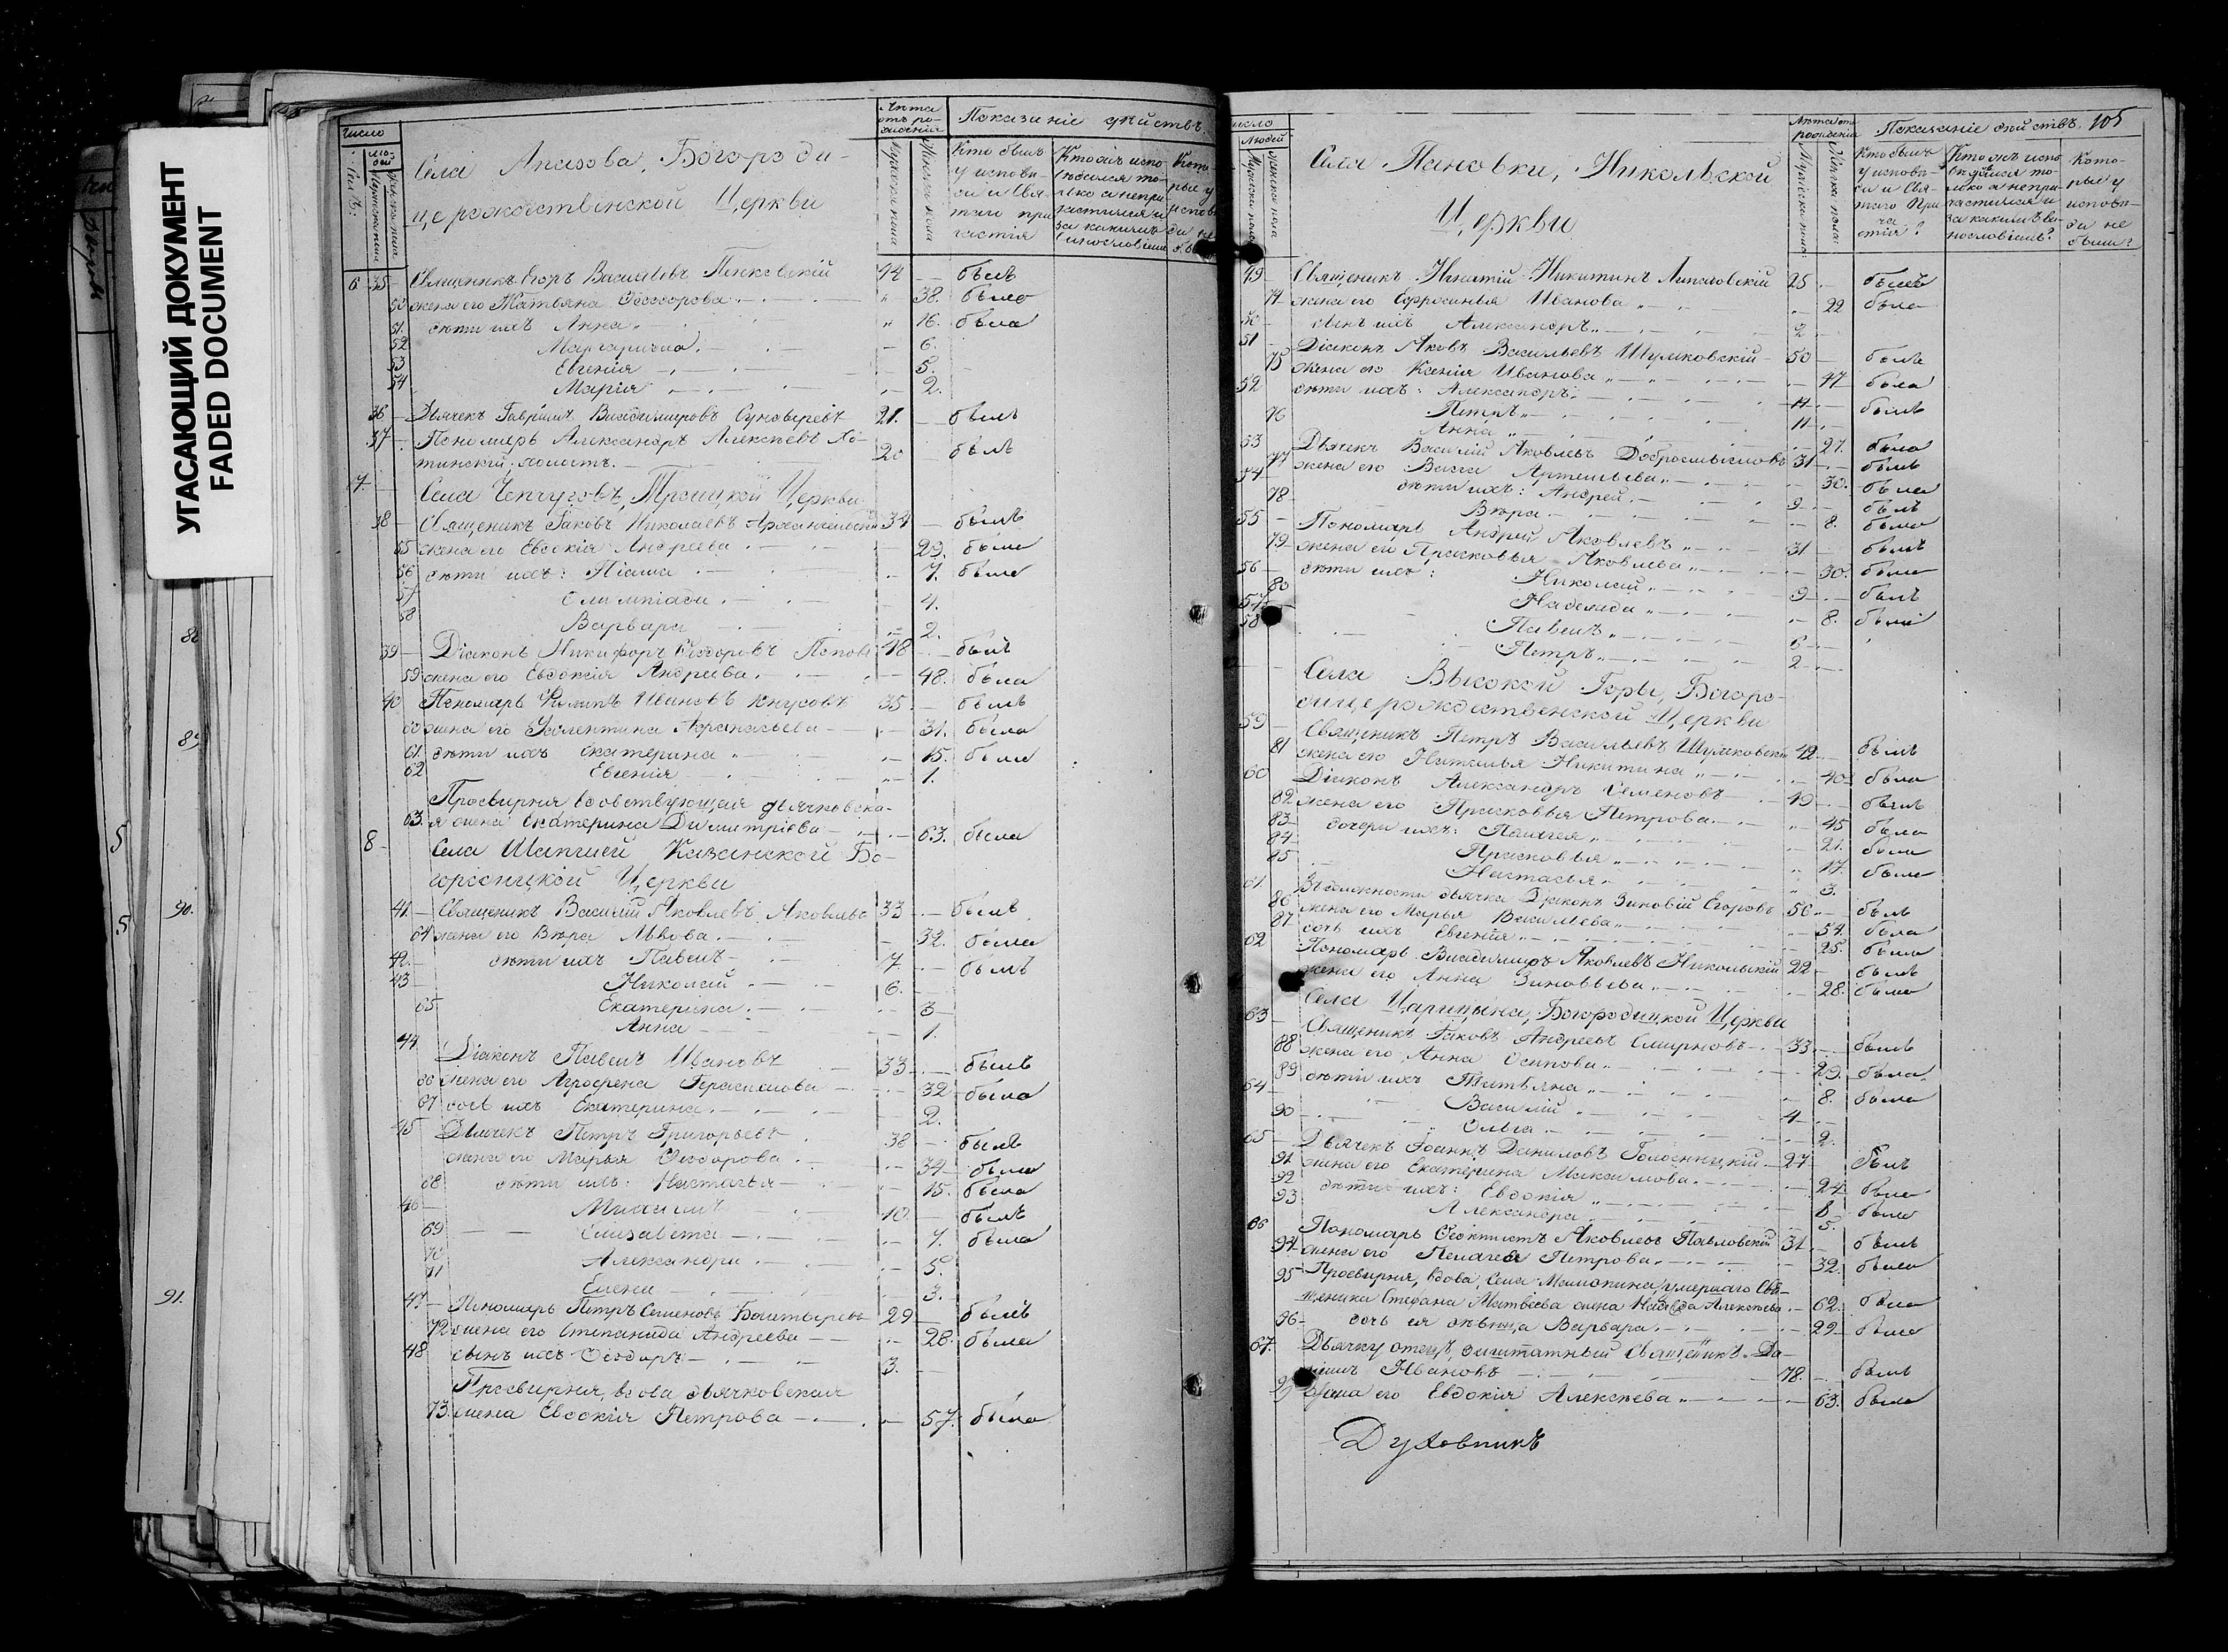 УГАСАЮЩИЙ ДОКУМЕНТ
FADED DOCUMENT
88
89
90.
91.
5
5
Число
Лѣта отъ рожденія
Показаніе дѣйствъ.
Мужеска пола
Женска пола
Кто былъ у исповѣди и Святаго причастія
Села Богороди-
церождественской Церкви
6. 35 Священникъ Егоръ Васильевъ 44 — былъ
50 жена его Татьяна Ѳеодорова 38. была
51. дѣти ихъ Анна 16. была
52 Маргарита 6.
53 Евгенія 5.
54 Марія 2.
36 Дьячекъ Гавріилъ Владимировъ 21. былъ
37 Пономарь Александръ Алексѣевъ Хо-
тинскій, холостъ. 20 былъ
7. Села Чепчуговъ, Троицкой Церкви
38 Священникъ Іаковъ Николаевъ 34 былъ
55 жена его Евдокія Андреева 29. была
56 дѣти ихъ: 7. была
57 Олимпіада 4.
58 Варвара 2.
39 Діаконъ Никифоръ Ѳеодоровъ Поповъ 48 былъ
59 жена его Евдокія Андреева 48. была
40 Пономарь Филипъ Ивановъ 35. былъ
60 жена его Валентина Афанасьева 31. была
61 дѣти ихъ Екатерина 15. была
62 Евгенія 1.
Просвирня вдовствующая дьячковска-
63. я жена Екатерина Димитріева 63. была
8 Села Шапшей Казанской Бо-
городицкой Церкви
41. Священникъ Василій Яковлевъ Яковлевъ 33 былъ
64 жена его Вѣра Львова 32. была
42. дѣти ихъ Павелъ 7 былъ
43 Николай 6.
65 Екатерина 3
Анна 1.
44 Діаконъ Павелъ Ивановъ 33 былъ
66 жена его Агрофена Герасимова 32 была
67 дочь ихъ Екатерина 2.
45 Дьячекъ Петръ Григорьевъ 38 былъ
жена его Марья Ѳеодорова 34 была
68 дѣти ихъ: Настасья 15. была
46 Михаилъ 10. былъ
69 Елизавета 7. была
70 Александра 5.
71 Елена 3.
47 Пономарь Петръ Семеновъ Богатыревъ 29 былъ
72 жена его Степанида Андреева 28. была
48 сынъ ихъ Ѳеодоръ 3.
Просвирня, вдова дьячковская
73. жена Евдокія Петрова 57. была
Число
Людей
Мужеска пола
Женска пола
Лѣта отъ рожденія
Показаніе дѣйствъ. 105
Кто былъ у исповѣди и Святаго Причастія?
Которые у исповѣди не были?
Села Пановки, Никольской
Церкви
49 Священникъ Никитинъ 25 былъ
74 жена его Ефросинья Иванова 22 была
50 сынъ ихъ Александръ 2
51 Діаконъ Яковъ Васильевъ Шумковскій 50 былъ
75 жена его Ксенія Иванова 47 была
52 дѣти ихъ: Александръ 11 былъ
Петръ 11
76 Анна 27. была
53 Дьячекъ Василій Яковлевъ Добросмысловъ 31 былъ
77 жена его Васса Артемьева 30. была
54 дѣти ихъ: Андрей 9 былъ
78 Вѣра 8. была
55 Пономарь Андрей Яковлевъ 31 былъ
79 жена его Прасковья Яковлева 30. была
56 дѣти ихъ: Николай 9 былъ
80 Надежда 8. была
57 Павелъ 6
58 Петръ 2
Села Высокой Горы, Богоро-
дицерождественской Церкви
59 Священникъ Петръ Васильевъ Шумковскій 42 былъ
81 жена его Наталья Никитина 40 была
60 Діаконъ Александръ Семеновъ 49 былъ
82 жена его Прасковья Петрова 45 была
83 дочери ихъ: Пелагея 21. была
84 Прасковья 17. была
85 Настасья 3.
61. Въ должности дьячка Діаконъ Зиновій Егоровъ 56 былъ
86 жена его Марья Васильева 54. была
87 дочь ихъ Евгенія 25. была
62 Пономарь Владимиръ Яковлевъ Никольскій 22 былъ
жена его Анна Зиновьева 28. была
Села Царицына, Богородицкой Церкви
63 Священникъ Іаковъ Андреевъ Смирновъ 33 былъ
88 жена его Анна Осипова 29. была
89 дѣти ихъ Татьяна 8. была
64 Василій 4
90 Ольга 2.
65 Дьячекъ Іоаннъ Даниловъ 27 былъ
91 жена его Екатерина Максимова 24 была
92 дѣти ихъ: Евдокія 8 была
93 Александра 5.
66 Пономарь Ѳеоктистъ Яковлевъ Павловскій 31 былъ
94 жена его Пелагея Петрова 32. была
95 Просвирня, вдова, Села умершаго Свя-
щенника Стефана Матвеева жена Надежда Алексѣева 62. была
96 дочь ея дѣвица Варвара 29 была
67. Дьячку отецъ, заштатный Священникъ Да-
ніилъ Ивановъ 78. былъ
97 жена его Евдокія Алексѣева 63. была
Духовникъ